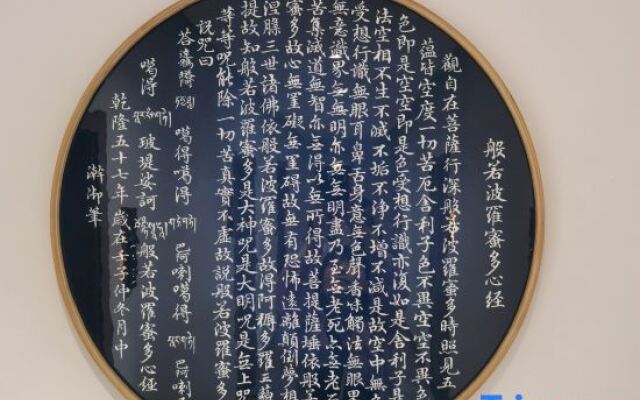 般若波羅蜜多心經
觀自在菩薩行深般若波羅蜜多時照見五
蘊皆空度一切苦厄舍利子色不異空空不異色
色即是空空即是色受想行識亦復如是舍利子是
法空相不生不滅不垢不淨不增不減是故空中無
受想行識無眼耳鼻舌身意無色聲香味觸法無眼界
無意識界無無明亦無無明盡乃至無老死亦無老
苦集滅道無智亦無得以無所得故菩提薩埵依般
蜜多故心無罣礙無罣礙故無有恐怖遠離顛倒夢想
涅槃三世諸佛依般若波羅蜜多故得阿耨多羅三藐
提故知般若波羅蜜多是大神呪是大明呪是無上呪
等等呪能除一切苦真實不虛故説般若波羅蜜多
説呪曰
噶得噶得 巴喇噶得 巴喇
噶得 娑訶 般若波羅蜜多心經
乾隆五十七年歲在壬子仲冬月中
澣御筆